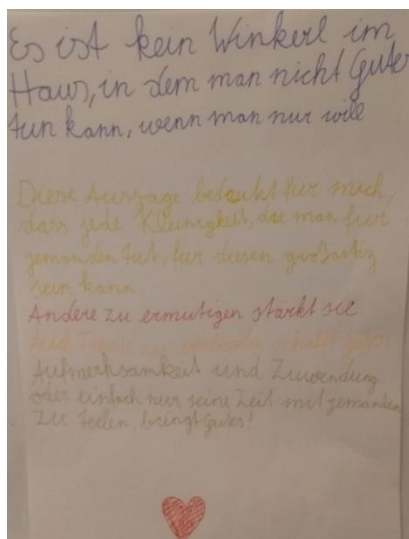 Es ist kein Winkerl im
Haus, in dem man nicht Gutes
tun kann, wenn man nur will
Diese Aussage bedeukt für mich,
dass jede Kleinigkeit, die man für
jemanden tut, für diesen großartig
sein kann.
Andere zu ermutigen stärkt sie
schafft Gutes
Aufmerksamkeit und Zuwendung
oder einfach nur seine Zeit mit jemanden
zu teilen, bringt Gutes!